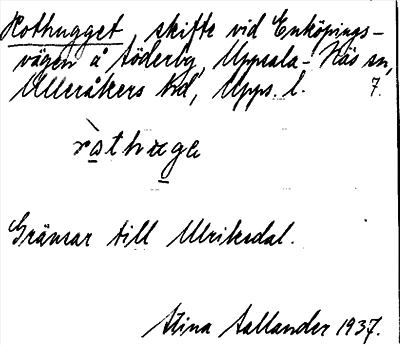 Rothugget, skifte vid Enköpings-
vägen å Söderby, Uppsala-Näs sn,
Ulleråkers hd, Upps. l. 7.
ròthuga
Gränsar till Ulriksdal.
Stina Sallander 1937.